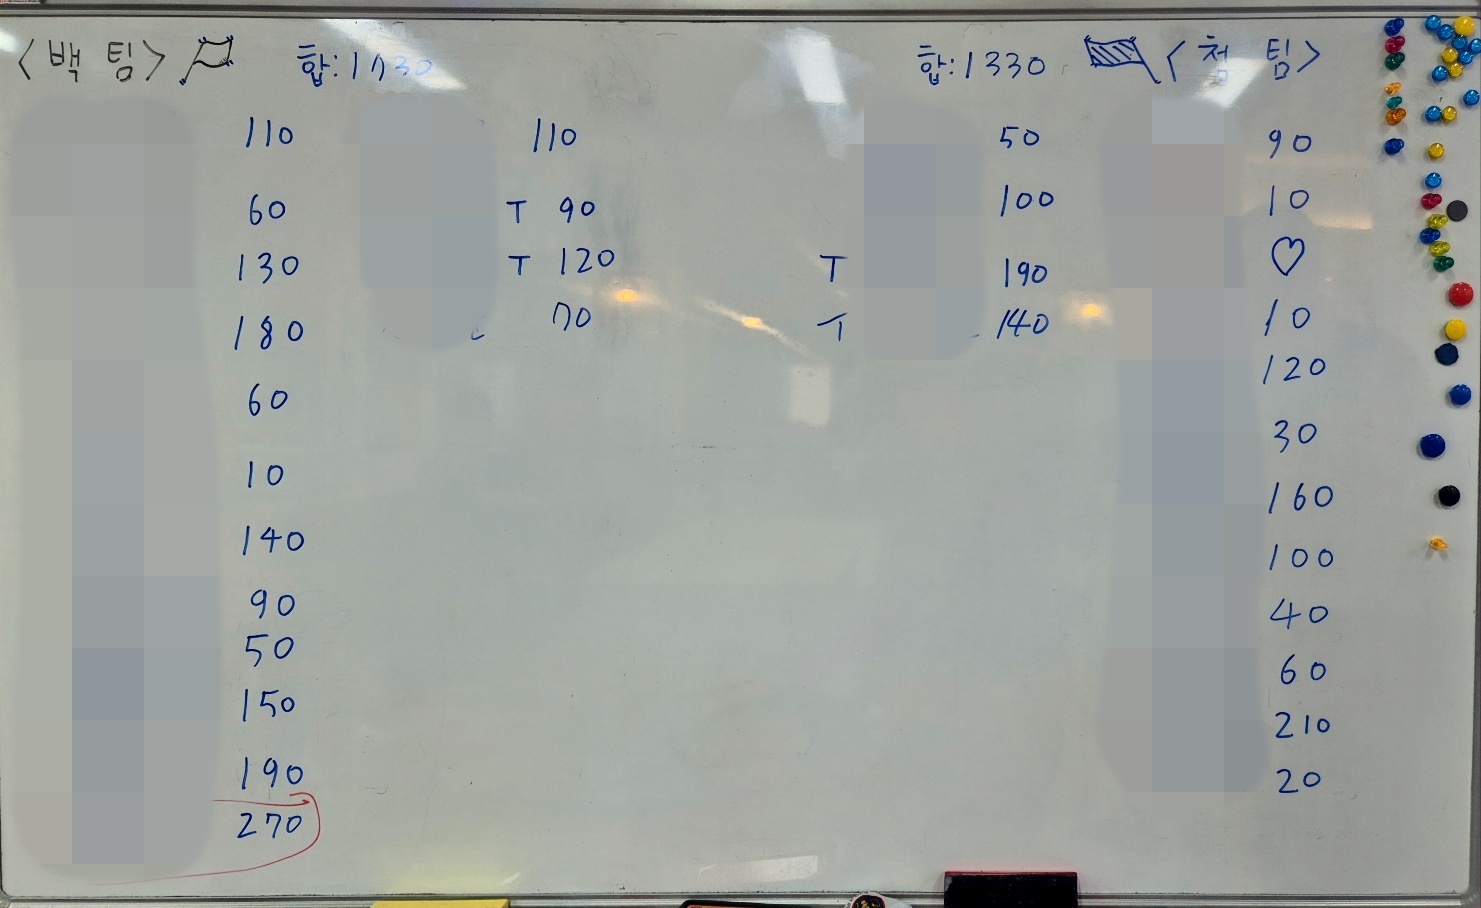 <백 팀> 합:1730
110
60
130
180
60
10
140
90
50
150
190
270
110
T 90
T 120
70
합:1330 <청 팀>
50
100
T 190
T 140
90
10
♡
10
120
30
160
100
40
60
210
20